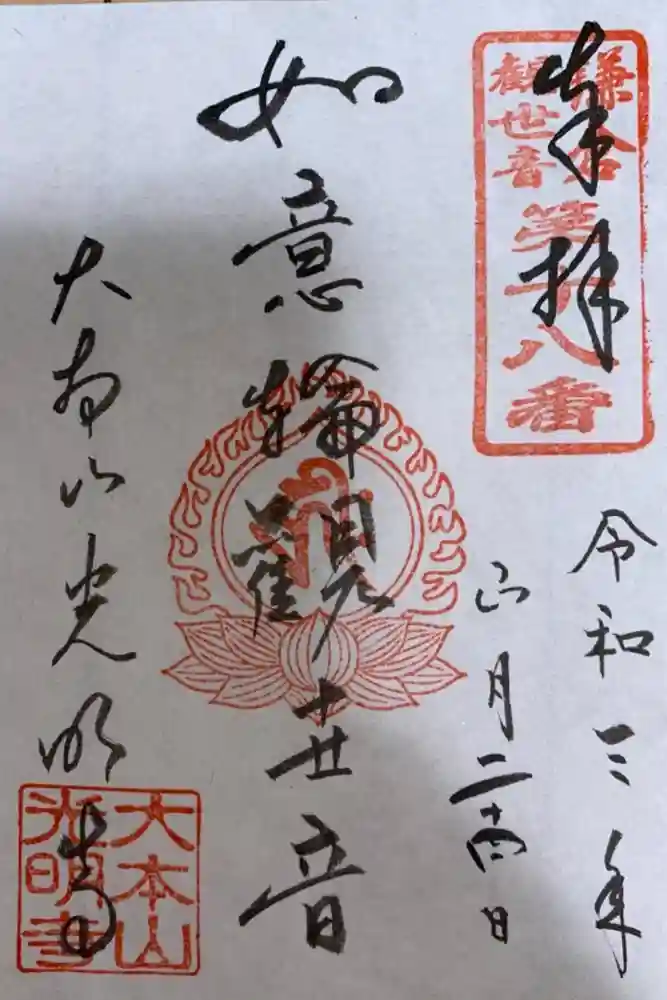 奉拝
鎌倉
観世音
第十八番
令和三年
四月二十四日
如意輪觀世音
大本山光明寺
大本山
光明寺